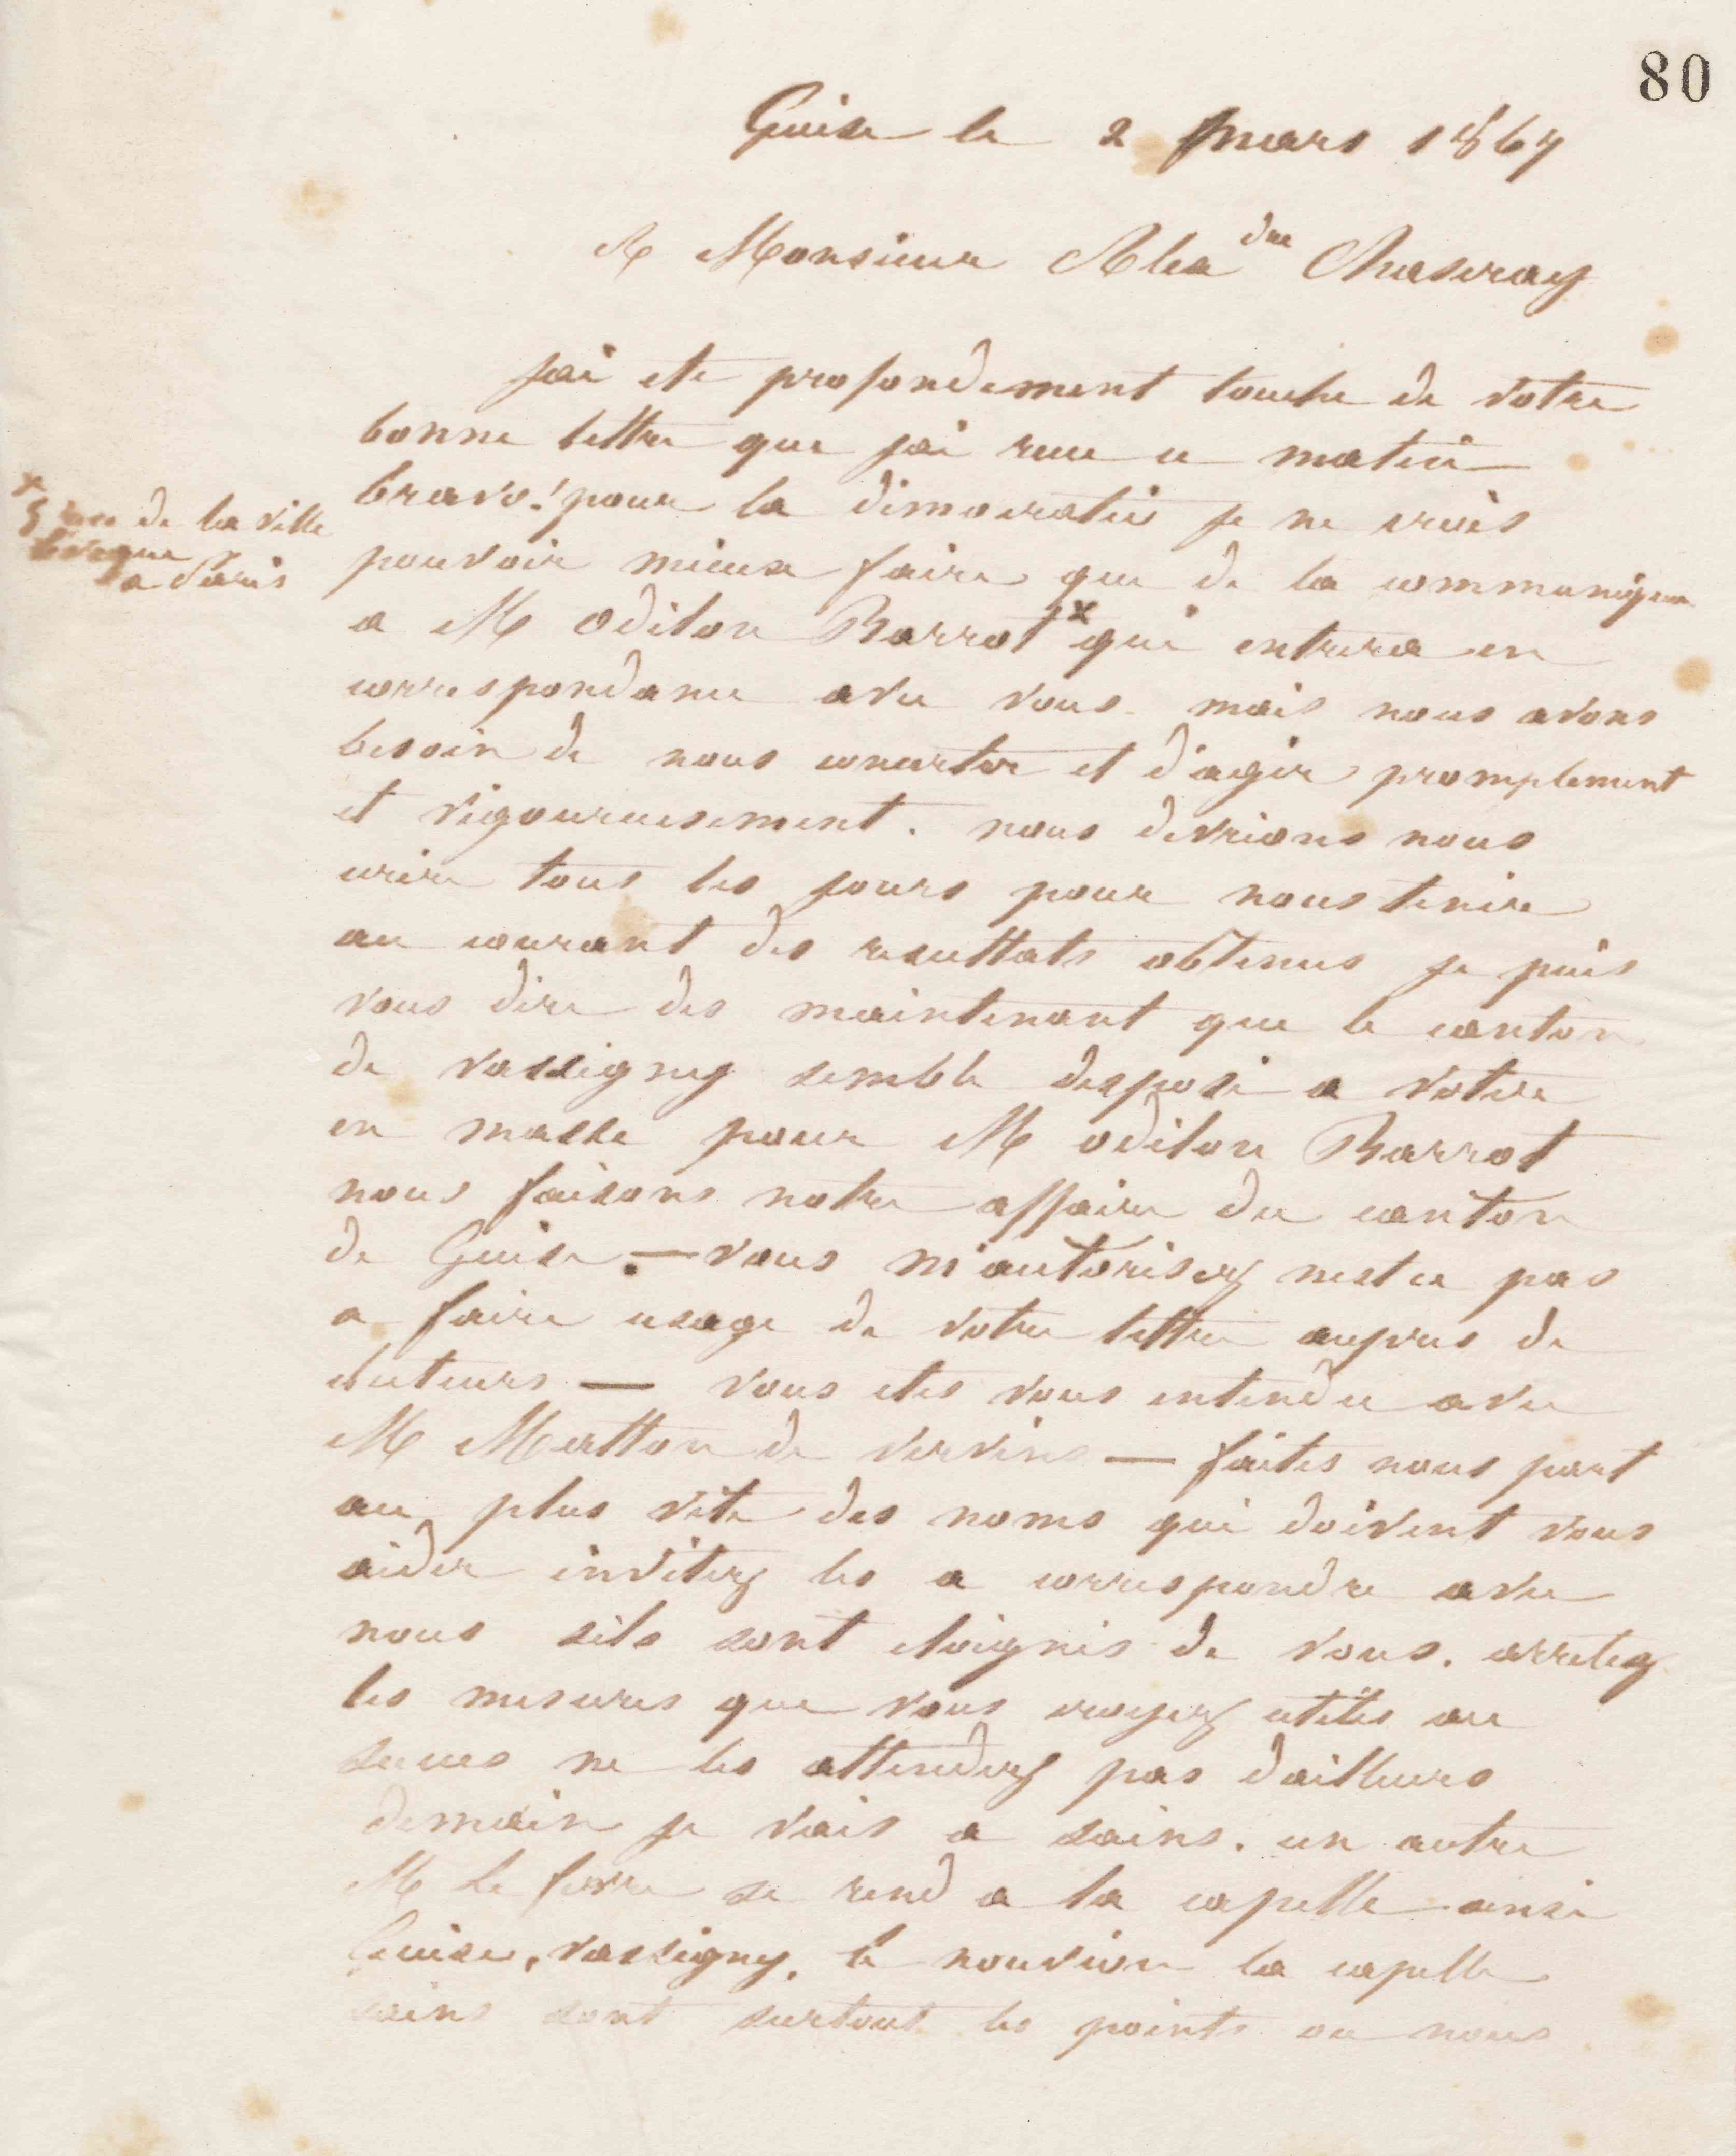 80
Guise le 2 mars 1867
A Monsieur Alexdre Chaseray
jai ete profondement touche de votre
bonne lettre que jai recue ce matin
bravo! pour la democratie je ne crois
pouvoir mieux faire que de la communiquer
a M Odilon Barrot x qui entrera en
correspondance avec vous mais nous avons
besoin de nous concerter et d'agir promptement
et vigoureusement. nous devrions nous
ecrire tous les jours pour nous tenir
au courant des resultats obtenus je puis
vous dire des maintenant que le canton
de vassigny semble dispose a voter
en masse pour M odilon Barrot
nous faisons notre affaire du canton
de Guise. — vous m'autorisez nest ce pas
a faire usage de votre lettre aupres de
electeurs — vous etes vous entendu avec
M Matton de vervins — faites nous part
au plus vite des noms qui doivent vous
aider invitez les a correspondre avec
nous sils sont eloignes de vous. arretez
les mesures que vous croyez utiles au
succes ne les attendez pas dailleurs
demain je vais a sains. un autre
M Le ferre se rend a la capelle ainsi
Guise, vassigny, le nouvion la capelle
sains sont surtout les points ou nous
x
5 de la ville
leveque
a Paris